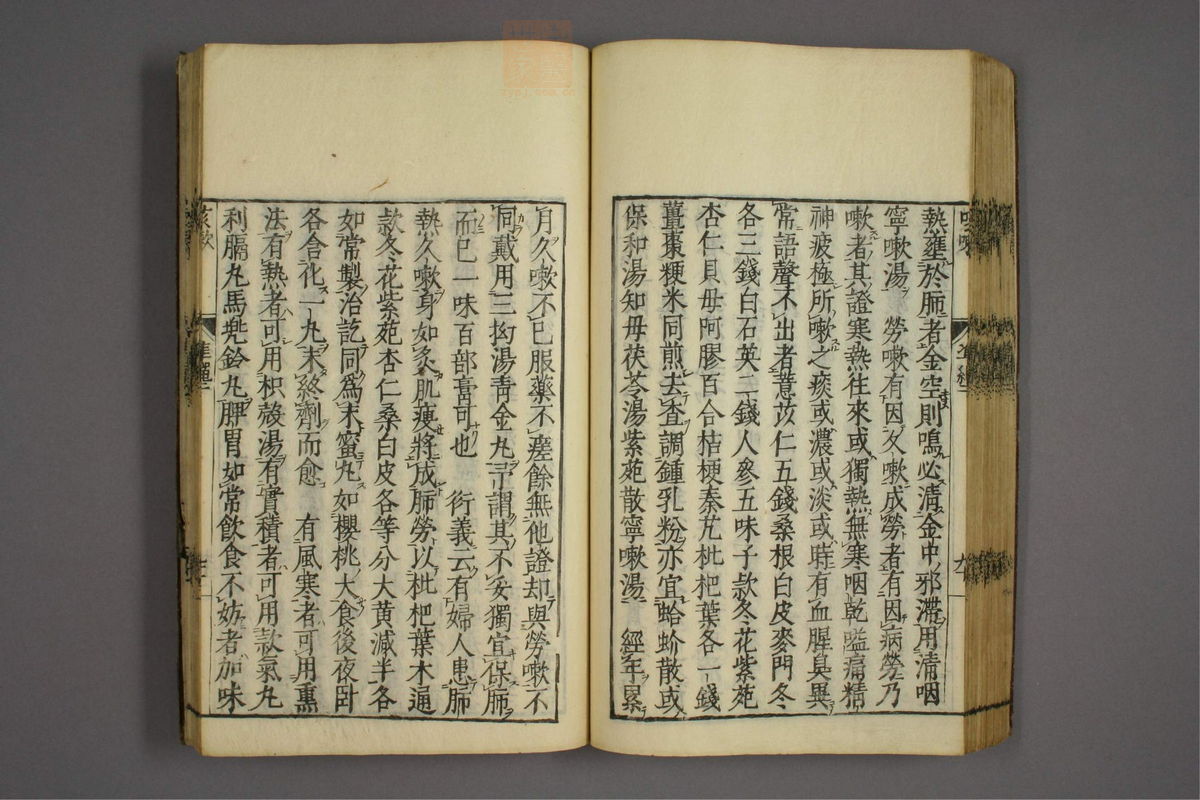 熱壅於肺者金空則鳴必淸金中邪滯用淸咽
寧嗽湯　勞嗽有因久嗽成勞者有因病勞乃
嗽者其證寒熱往來或獨熱無寒咽乾嗌痛精
神疲極所嗽之痰或濃或淡或時有血腥臭異
常語聲不出者薏苡仁五錢桑根白皮麥門冬
各三錢白石英二錢人參五味子款冬花紫菀
杏仁貝母阿膠百合桔梗秦艽枇杷葉各一錢
薑棗粳米同煎去査調鍾乳粉亦宜蛤蚧散或
保和湯知母茯苓湯紫菀散寧嗽湯　經年累
月久嗽不已服藥不瘥餘無他證却與勞嗽不
同戴用三拗湯靑金丸予謂其不妥獨宜保肺
而已一味百部膏可也　衍義云有婦人患肺
熱久嗽身如灸肌瘦將成肺勞以枇杷葉木通
款冬花紫菀杏仁桑白皮各等分大黄減半各
如常製治訖同爲末蜜丸如櫻桃大食後夜臥
各含化一丸未終劑而愈　有風寒者可用熏
法有熱者可用枳殼湯有實積者可用款氣丸
利膈丸馬兜鈴丸脾胃如常飮食不妨者加味
咳嗽